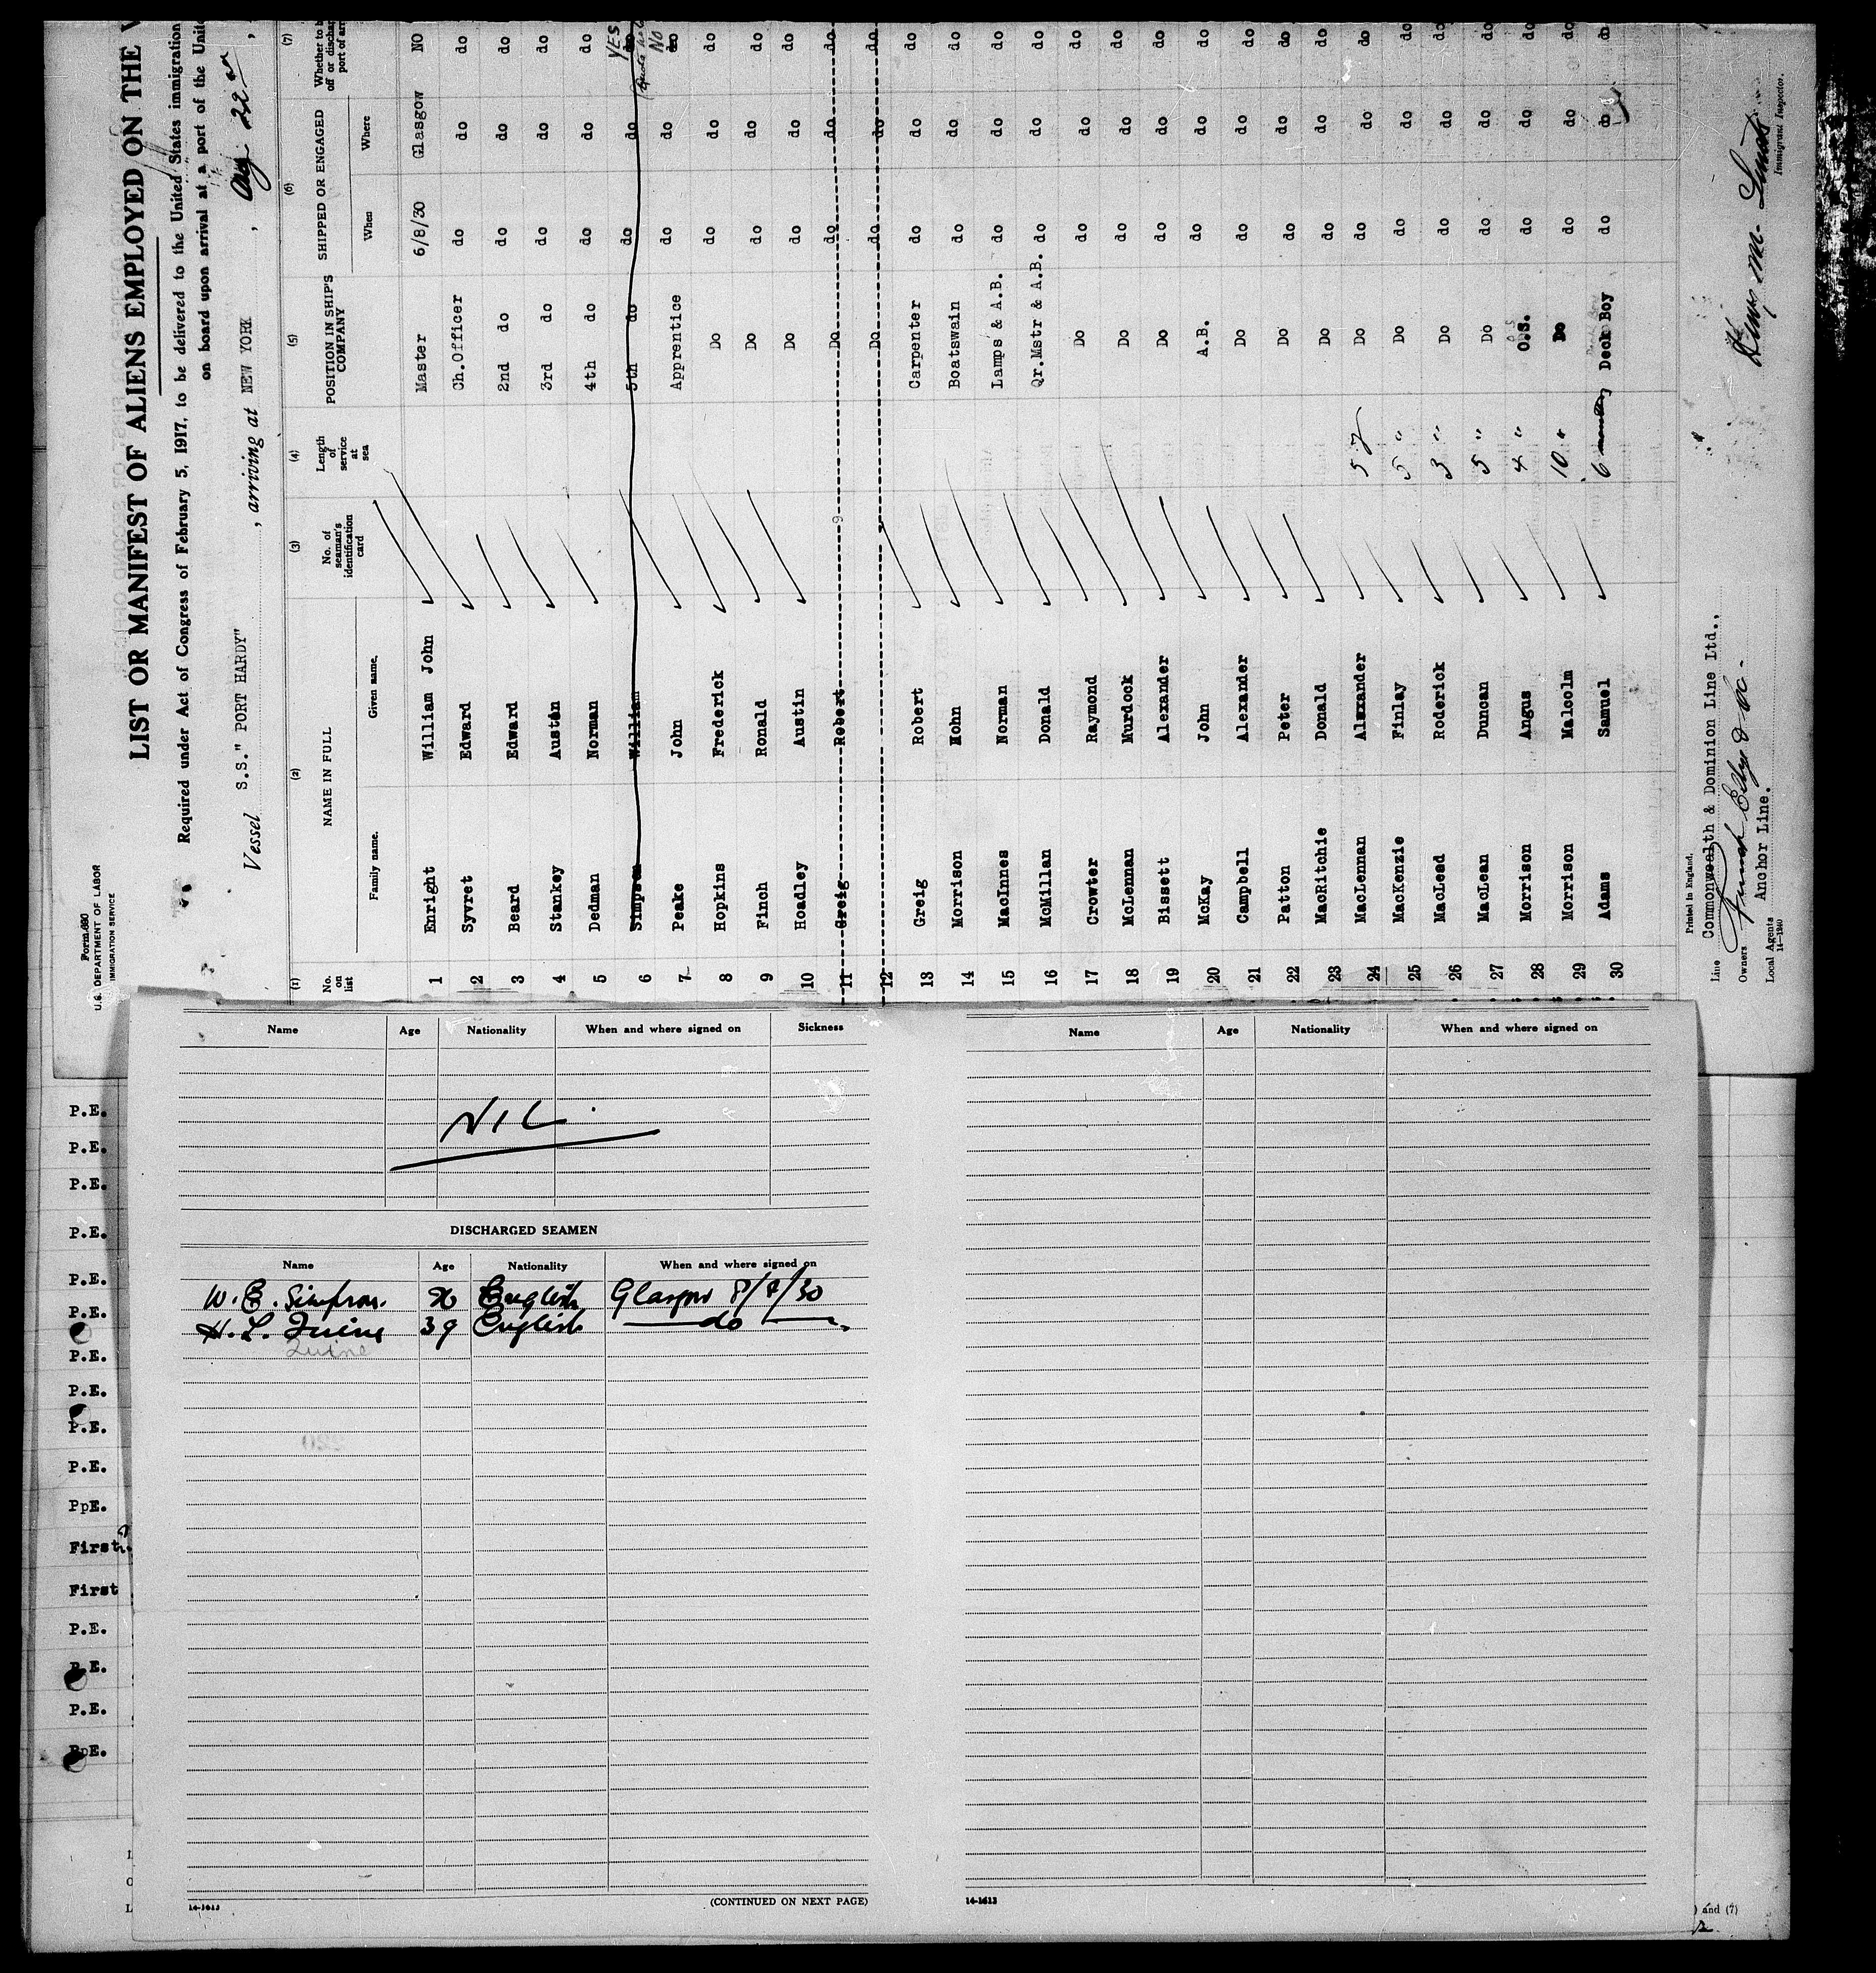 Form 680
U.S. DEPARTMENT OF LABOR
IMMIGRATION SERVICE
LIST OR MANIFEST OF ALIENS EMPLOYED ON THE V
Required under Act of Congress of February 5, 1917, to be delivered to the United States immigration
on board upon arrival at a port of the Unit
Vessel S.S." PORT HARDY" , arriving at NEW YORK , Aug 22
(1) (2) (3) (4) (5) (6) (7)
No. on list NAME IN FULL No. of seaman's identification card Length of service at sea POSITION IN SHIP'S COMPANY SHIPPED OR ENGAGED Whether to b off or dischar port of arr
Family name. Given name. When Where
1 Enright William John Master 6/8/30 Glasgow NO
2 Syvret Edward Ch.Officer do do do
3 Beard Edward 2nd do do do do
4 Stankey Austin 3rd do do do do
5 Dedman Norman 4th do do do do
6 Simpson William 5th do do do do YES
7 Peake John Apprentice do do do No
8 Hopkins Frederick Do do do do
9 Finch Ronald Do do do do
10 Hoadley Austin Do do do do
11 Greig Robert Do do do do
12 Do do do do
13 Greig Robert Carpenter do do do
14 Morrison Hohn Boatswain do do do
15 MacInnes Norman Lamps & A.B. do do do
16 McMillan Donald Qr.Mstr & A.B. do do do
17 Crowter Raymond Do do do do
18 McLennan Murdock Do do do do
19 Bissett Alexander Do do do do
20 McKay John A.B. do do do
21 Campbell Alexander Do do do do
22 Patton Peter Do do do do
23 MacRitchie Donald Do do do do
24 MacLennan Alexander 5 y Do do do do
25 MacKenzie Finlay 5 " Do do do do
26 MacLead Roderick 3 " Do do do do
27 MacLean Duncan 5 " Do do do do
28 Morrison Angus 4 " O.S. do do do
29 Morrison Malcolm 10 " Do do do do
30 Adams Samuel 6 months Deck Boy do do do
Printed in England.
Line Commonwealth & Dominion Line Ltd.,
Owners
Local Agents Anchor Line.
14-1240
Immigrant Inspector.
Name Age Nationality When and where signed on Sickness
NIL
DISCHARGED SEAMEN
Name Age Nationality When and where signed on
W. E. Simpson. 20 English Glasgow 8/8/30
H. L. Quine 39 English do
Quine
(CONTINUED ON NEXT PAGE)
14-1613
Name Age Nationality When and where signed on
14-1613
P.E.
P.E.
P.E.
P.E.
P.E.
P.E.
P.E.
P.E.
P.E.
P.E.
PpE.
First
First
P.E.
P.E.
P.E.
PpE.
) and (7)